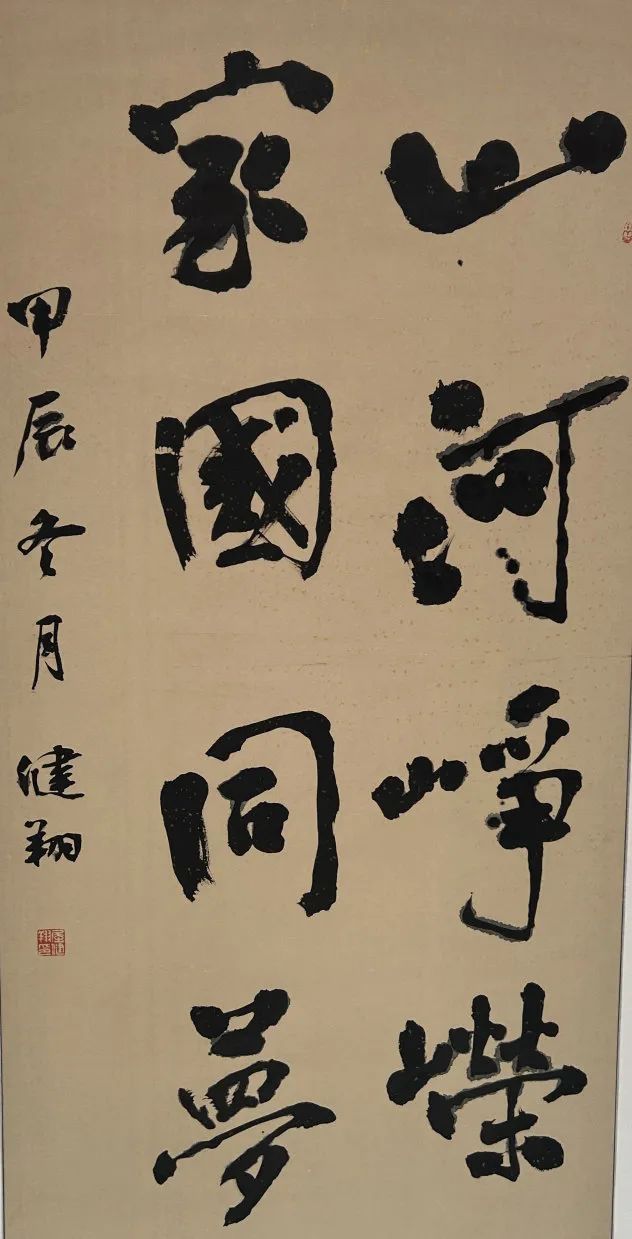 山河峥嵘
家國同夢
甲辰冬月健翔